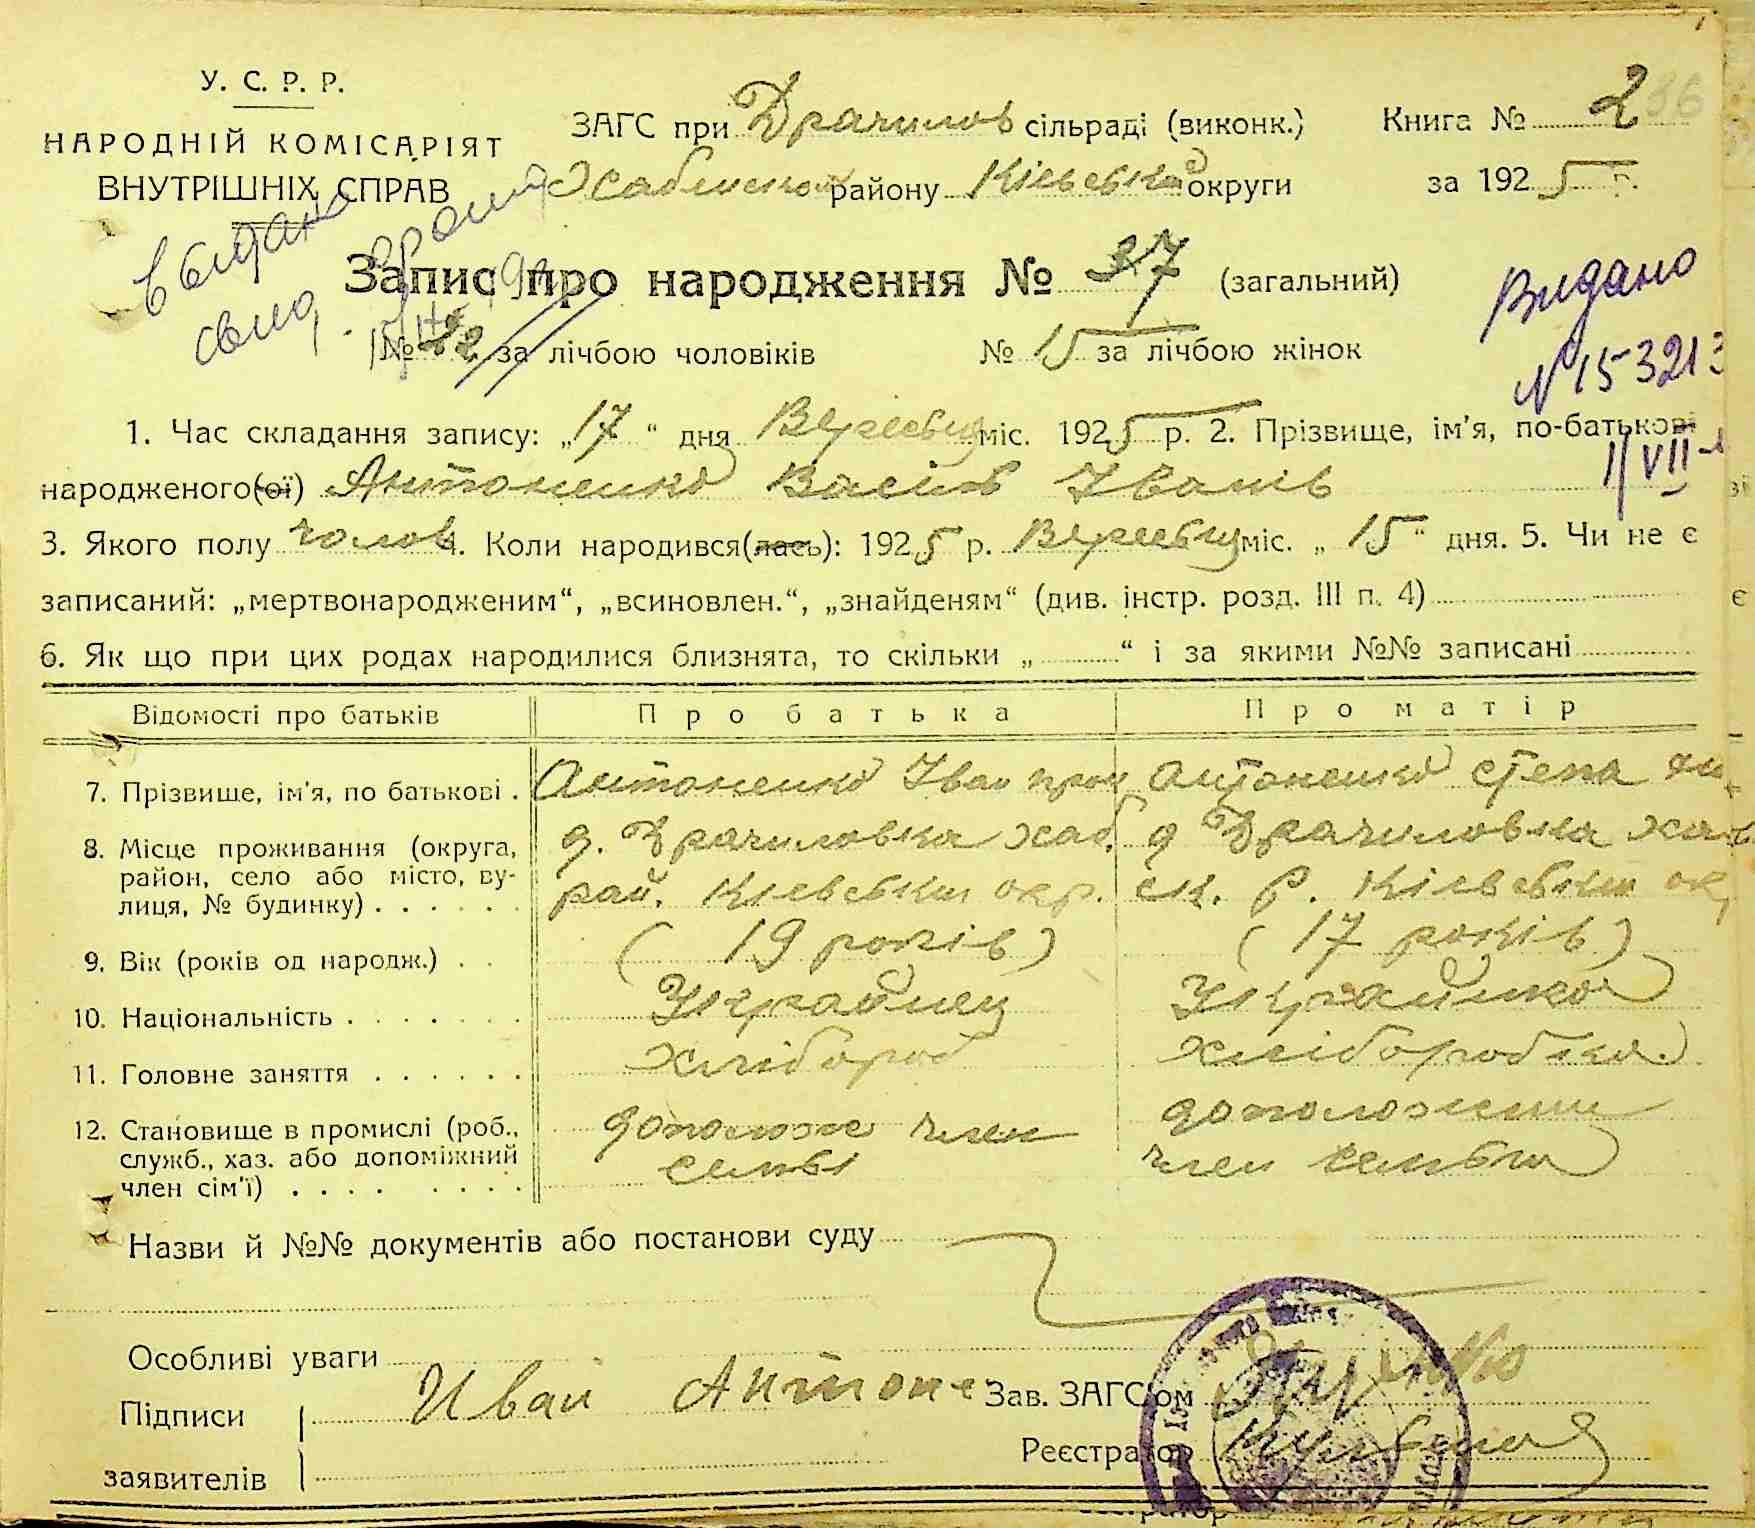 У. С. Р. Р.
НАРОДНІЙ КОМІСАРІЯТ
ВНУТРІШНІХ СПРАВ
ЗАГС при Драчилов сільраді (виконк.)
Книга № 2 36
Хабенског району Кіевськой округи
за 1925 р.
выдано
свид.
Запис про народження № 37 (загальний)
№ 22 за лічбою чоловіків
№ 15 за лічбою жінок
Видано
N 153213
11/VII
1. Час складання запису: „17“ дня Вересьця міс. 1925 р. 2. Прізвище, ім'я, по-батькові
народженого(ої) Антоненко Васіль Іванів
3. Якого полу чолов 4. Коли народився(лась): 1925 р. Вересьця міс. „15“ дня. 5. Чи не є
записаний: „мертвонародженим“, „всиновлен.“, „знайденям“ (див. інстр. розд. III п. 4)
6. Як що при цих родах народилися близнята, то скільки „ “ і за якими №№ записані
Відомості про батьків
Про батька
Про матір
7. Прізвище, ім'я, по батькові .
Антоненко Іван
Антоненко Степа
8. Місце проживання (округа,
район, село або місто, ву-
лиця, № будинку) . . . . . .
д. Драчиловка хаб.
рай. Кіевськии окр.
д Драчиловка хаб
ск. Р. Кіевськии ок
9. Вік (років од народж.) . .
(19 років)
(17 років)
10. Національність . . . . . . .
Украйнец
Украйнка
11. Головне заняття . . . . . .
хлібороб
хліборобка
12. Становище в промислі (роб.,
служб., хаз. або допоміжний
член сім'ї) . . . . . . . .
дополож член
семьі
доположнии
член семьи
Назви й №№ документів або постанови суду
Особливі уваги
Підписи
заявителів
Иван Антоне
Зав. ЗАГС'ом
Реєстратор